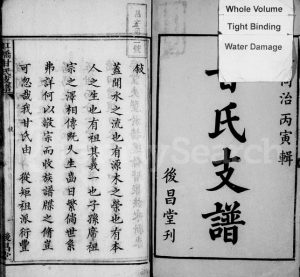 Whole Volume
Tight Binding
Water Damage
治丙寅輯
氏支譜
後昌堂刊
叙
蓋聞水之流也有源木之榮也有本
人之生也有祖其義一也子孫席祖
宗之澤相傳既久生齒日繁世系
弗詳何以敬宗而收族譜牒之脩豈
可忽哉我甘氏由從姬祖派衍豐